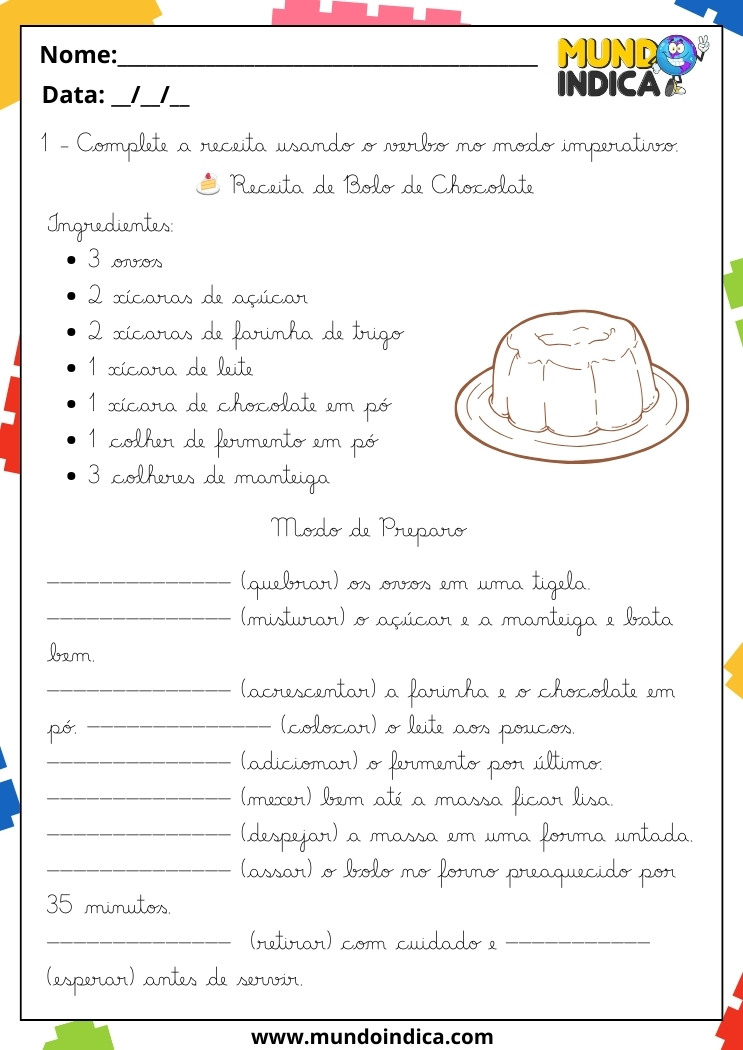 Nome:___________________________________
Data: __/__/__
MUNDO
INDICA
1 - Complete a receita usando o verbo no modo imperativo.
Receita de Bolo de Chocolate
Ingredientes:
• 3 ovos
• 2 xícaras de açúcar
• 2 xícaras de farinha de trigo
• 1 xícara de leite
• 1 xícara de chocolate em pó
• 1 colher de fermento em pó
• 3 colheres de manteiga
Modo de Preparo
______________ (quebrar) os ovos em uma tigela.
______________ (misturar) o açúcar e a manteiga e bata
bem.
______________ (acrescentar) a farinha e o chocolate em
pó. ______________ (colocar) o leite aos poucos.
______________ (adicionar) o fermento por último.
______________ (mexer) bem até a massa ficar lisa.
______________ (despejar) a massa em uma forma untada.
______________ (assar) o bolo no forno preaquecido por
35 minutos.
______________ (retirar) com cuidado e ___________
(esperar) antes de servir.
www.mundoindica.com